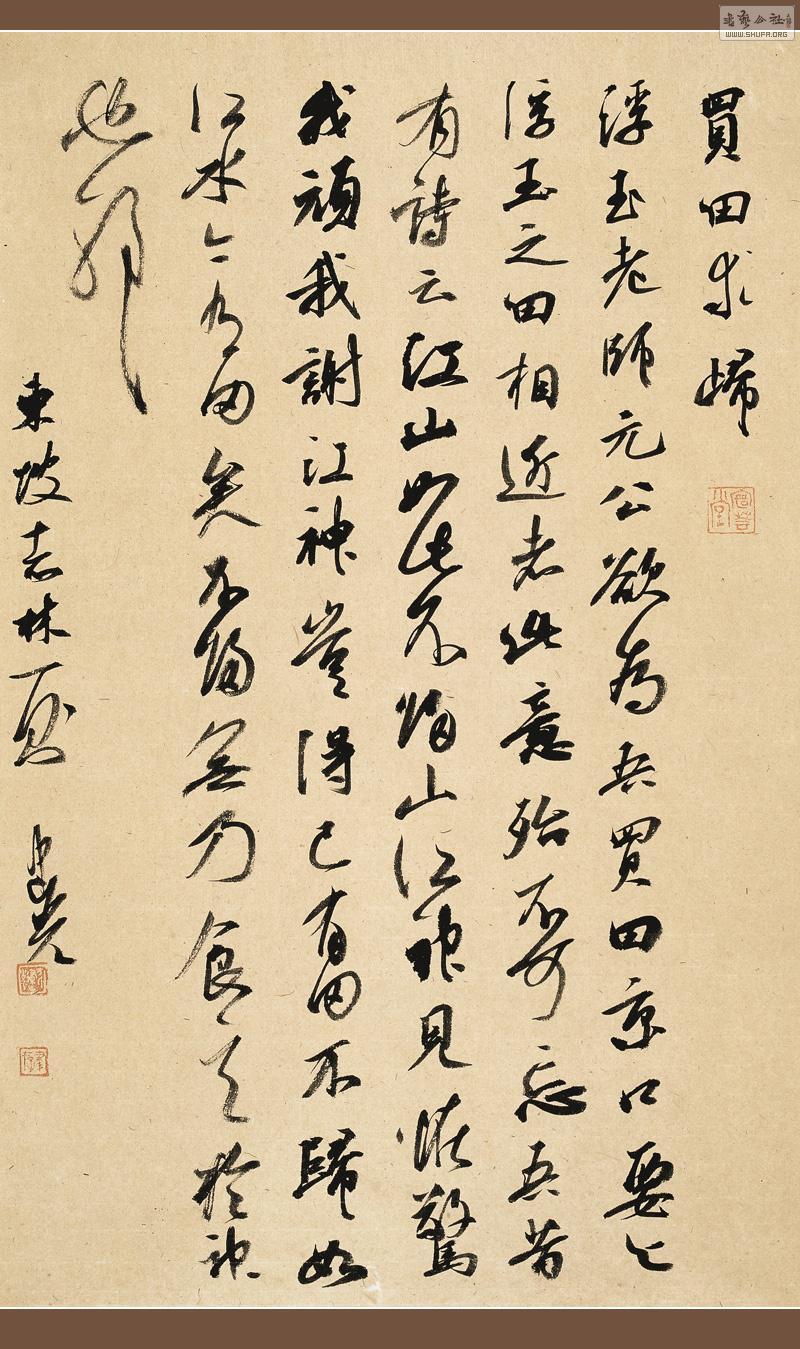 買田求歸
浮玉老師元公欲為吾買田京口要与
浮玉之田相近者此意殆不可忘吾昔
有詩云江山如此不歸山江神見怪驚
我頑我謝江神豈得已有田不歸如
江水今有田矣不歸無乃食言於神
也耶
東坡志林一則
書藝公社
WWW.SHUFA.ORG